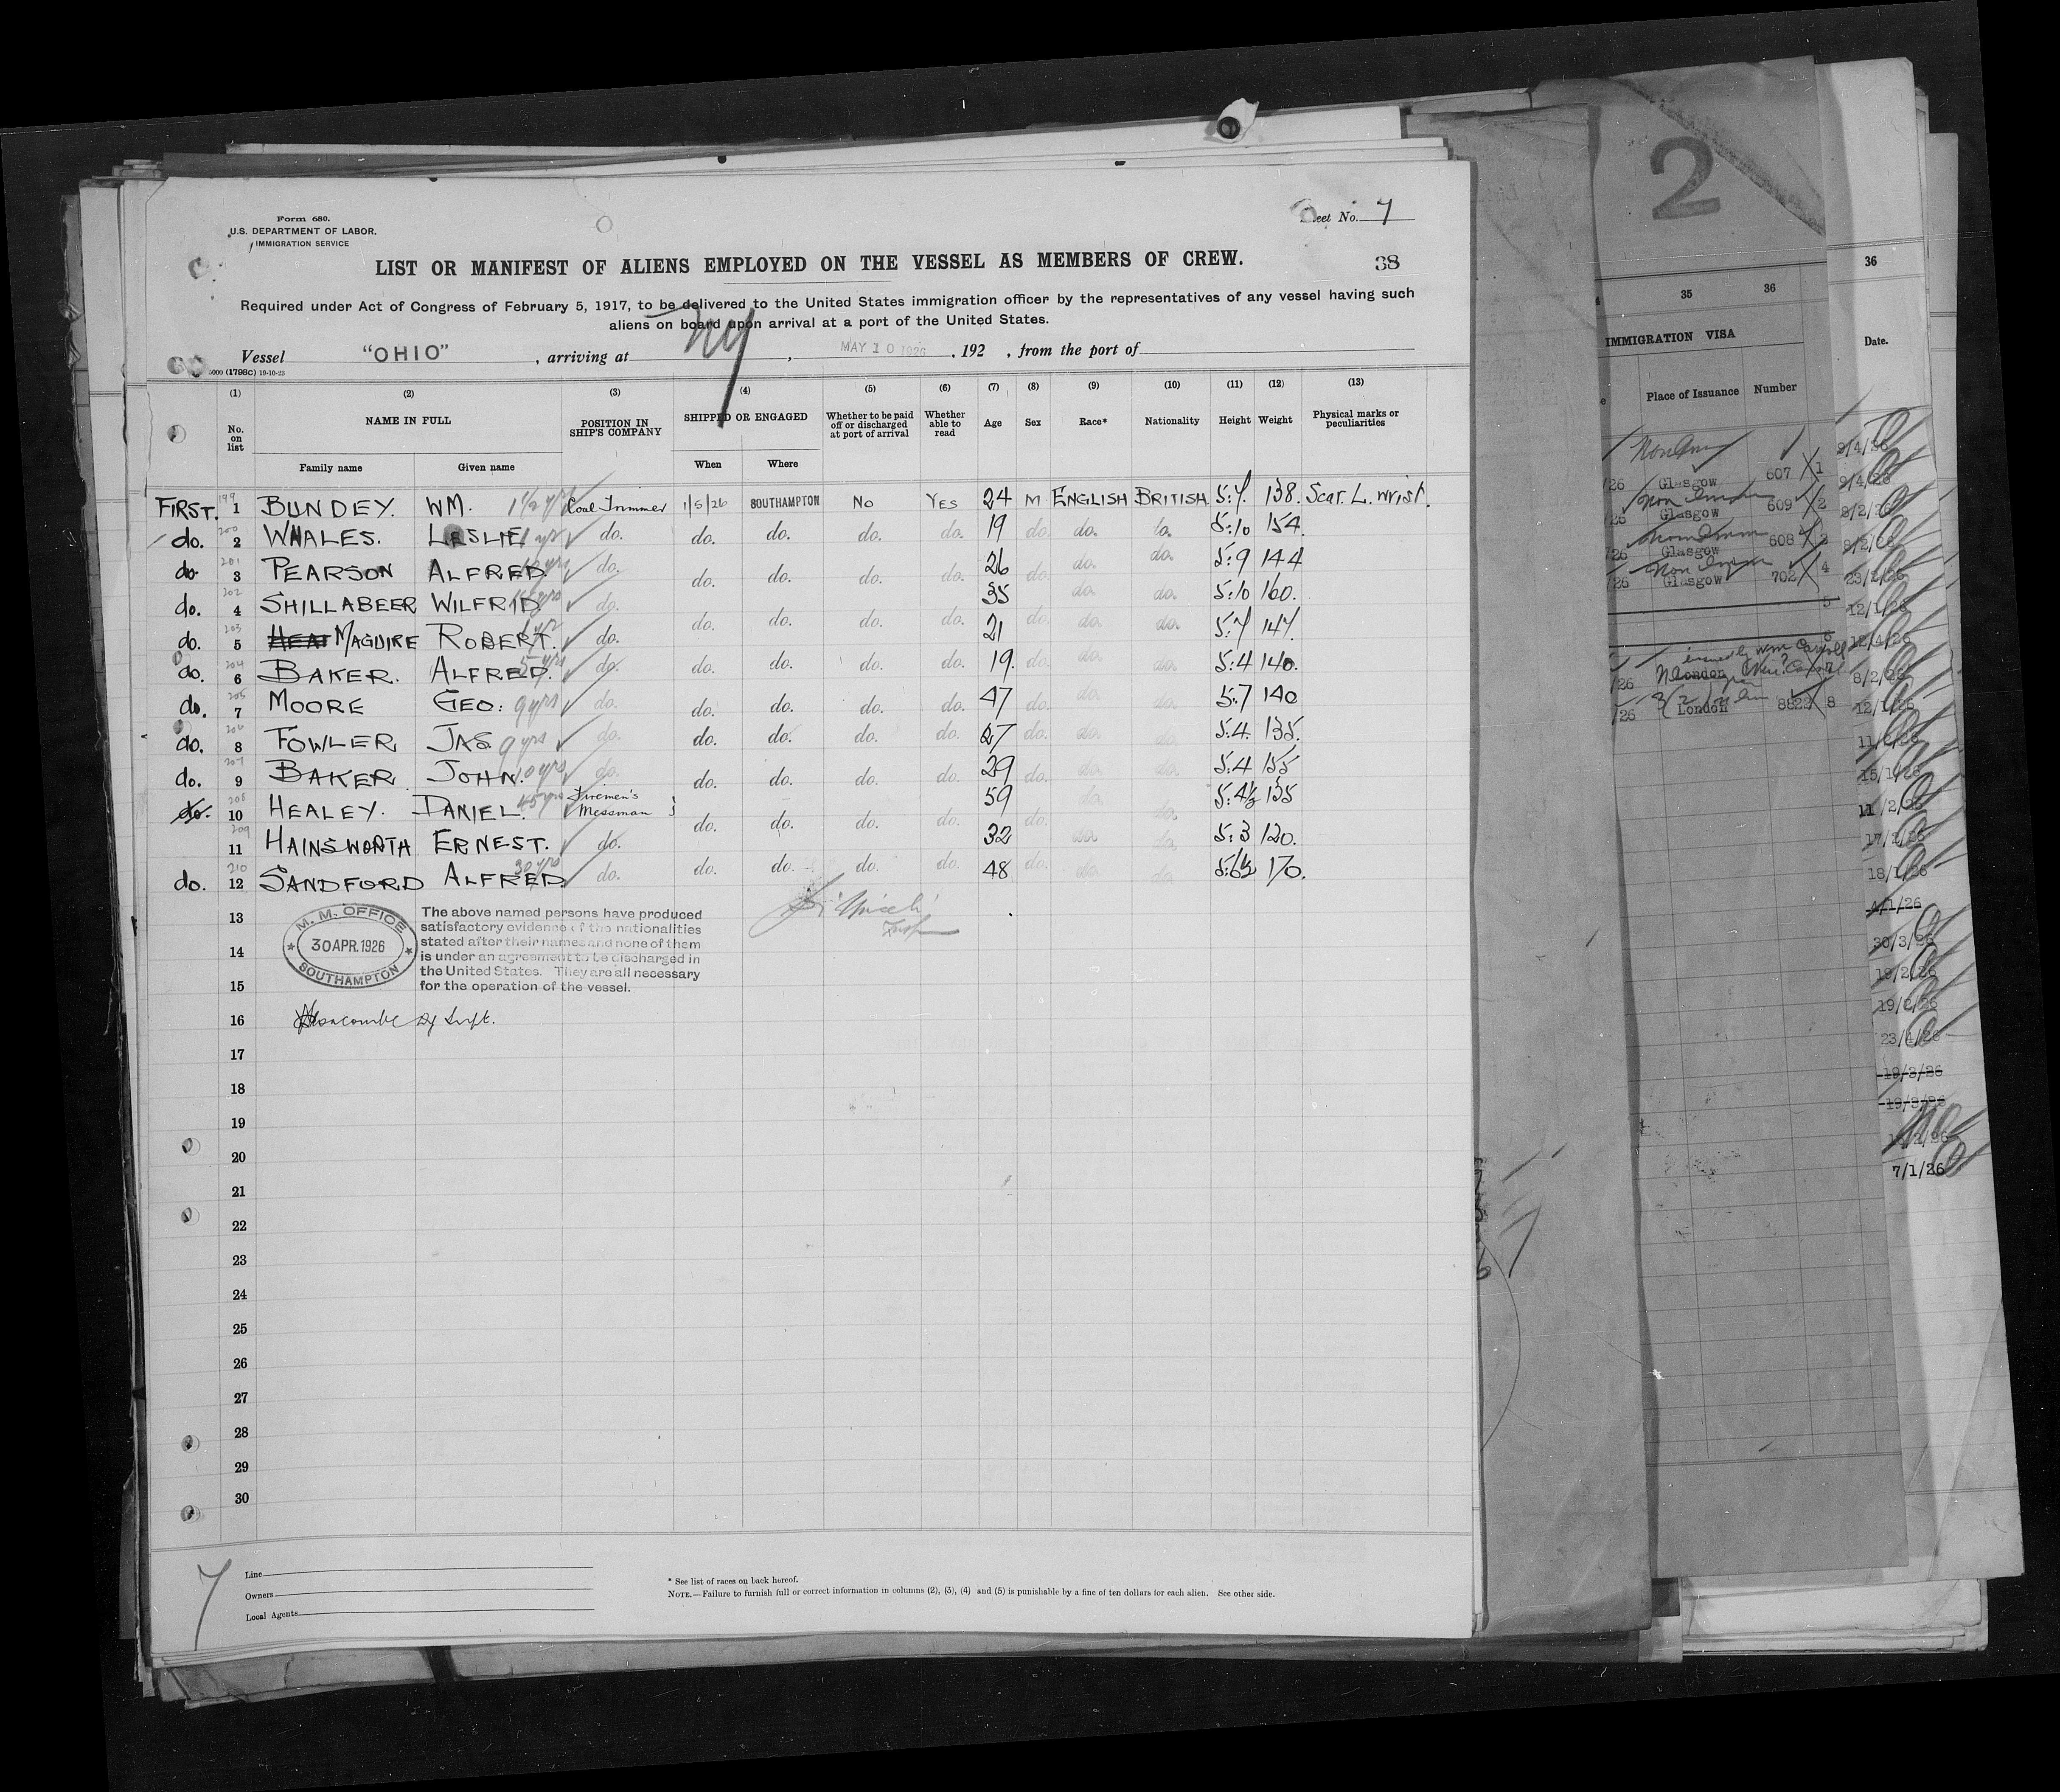 Form 680.
U.S. DEPARTMENT OF LABOR.
IMMIGRATION SERVICE
Sheet No. 7
LIST OR MANIFEST OF ALIENS EMPLOYED ON THE VESSEL AS MEMBERS OF CREW.
38
Required under Act of Congress of February 5, 1917, to be delivered to the United States immigration officer by the representatives of any vessel having such
aliens on board upon arrival at a port of the United States.
Vessel "OHIO", arriving at NY, MAY 10 1926, 192 , from the port of
5000 (1798C) 19-10-23
(1) (2) (3) (4) (5) (6) (7) (8) (9) (10) (11) (12) (13)
No. on list NAME IN FULL POSITION IN SHIP'S COMPANY SHIPPED OR ENGAGED Whether to be paid off or discharged at port of arrival Whether able to read Age Sex Race* Nationality Height Weight Physical marks or peculiarities
Family name Given name When Where
FIRST. 199 1 BUNDEY. WM. 1 1/2 yrs Coal Trimmer 1/5/26 SOUTHAMPTON NO YES 24 M ENGLISH BRITISH 5:7. 138. Scar. L. wrist.
do. 200 2 WHALES. LESLIE 1 yr do. do. do. do. do. 19 do. do. do. 5:10 154.
do. 201 3 PEARSON ALFRED. do. do. do. do. do. 26 do. do. do. 5:9 144
do. 202 4 SHILLABEER WILFRID do. do. do. do. do. 35 do. do. 5:10 160.
do. 203 5 MAGUIRE ROBERT. do. do. do. do. do. 21 do. do. do. 5:7 147.
do. 204 6 BAKER. ALFRED. 5 yrs do. do. do. do. do. 19. do. do. do. 5:4 140.
do. 205 7 MOORE GEO: 9 yrs do. do. do. do. do. 47 do. do. do. 5:7 140
do. 206 8 FOWLER JAS 9 yrs do. do. do. do. do. 27 do. do. do. 5:4. 135.
do. 207 9 BAKER JOHN. do. do. do. do. do. 29 do. do. do. 5:4 155
do. 208 10 HEALEY. DANIEL. 45 yrs Firemen's Messman do. do. do. do. 59 do. do. do. 5:4½ 135
209 11 HAINSWORTH ERNEST. do. do. do. do. do. 32 do. do. do. 5:3 120.
do. 210 12 SANDFORD ALFRED 30 yrs do. do. do. do. do. 48 do. do. do. 5:6½ 170.
13
14
15
M. M. OFFICE
30 APR. 1926
SOUTHAMPTON
The above named persons have produced
satisfactory evidence of the nationalities
stated after their names and none of them
is under an agreement to be discharged in
the United States. They are all necessary
for the operation of the vessel.
16 Dy Supt.
17
18
19
20
21
22
23
24
25
26
27
28
29
30
7
Line
Owners
Local Agents
* See list of races on back hereof.
NOTE.—Failure to furnish full or correct information in columns (2), (3), (4) and (5) is punishable by a fine of ten dollars for each alien. See other side.
2
35 36
IMMIGRATION VISA
Place of Issuance Number
Glasgow 607 1
Glasgow 609 2
Glasgow 608 3
Glasgow 702 4
5
6
London 7
London 8822 8
36
Date.
9/4/26
9/4/26
8/2/26
8/2/26
12/1/26
12/4/26
8/2/26
15/1/26
11/2/26
17/2/26
18/1/26
4/1/26
30/3/26
19/2/26
19/2/26
23/4/26
19/3/26
19/3/26
7/1/26